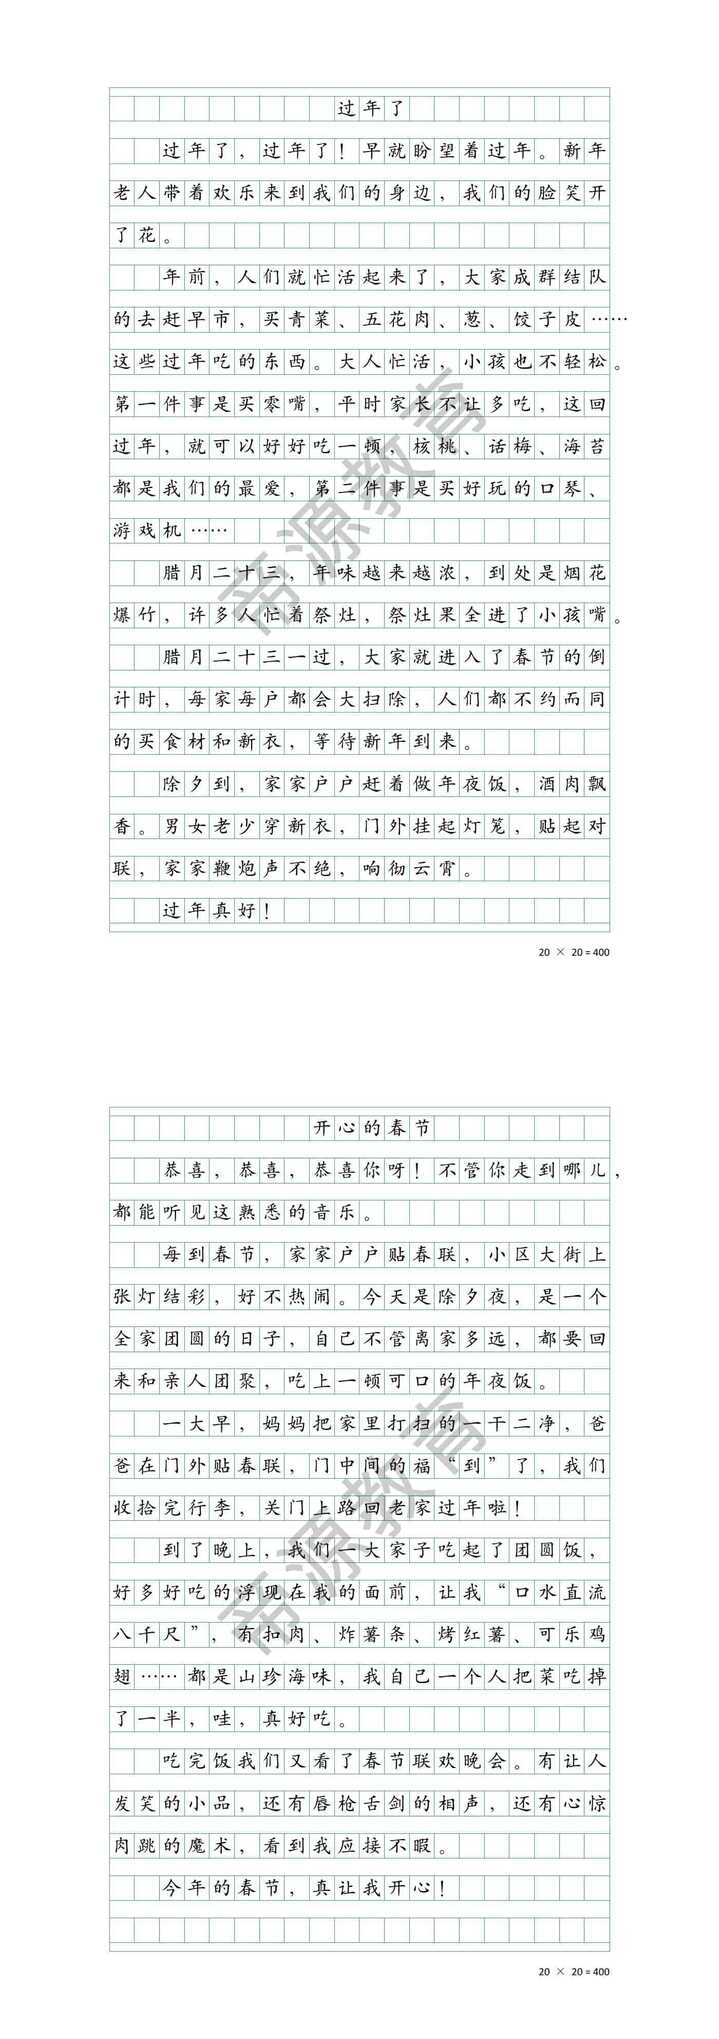 过年了
过年了，过年了！早就盼望着过年。新年
老人带着欢乐来到我们的身边，我们的脸笑开
了花。
年前，人们就忙活起来了，大家成群结队
的去赶早市，买青菜、五花肉、葱、饺子皮……
这些过年吃的东西。大人忙活，小孩也不轻松。
第一件事是买零嘴，平时家长不让多吃，这回
过年，就可以好好吃一顿，核桃、话梅、海苔
都是我们的最爱，第二件事是买好玩的口琴、
游戏机……
腊月二十三，年味越来越浓，到处是烟花
爆竹，许多人忙着祭灶，祭灶果全进了小孩嘴。
腊月二十三一过，大家就进入了春节的倒
计时，每家每户都会大扫除，人们都不约而同
的买食材和新衣，等待新年到来。
除夕到，家家户户赶着做年夜饭，酒肉飘
香。男女老少穿新衣，门外挂起灯笼，贴起对
联，家家鞭炮声不绝，响彻云霄。
过年真好！
20 × 20 = 400
开心的春节
恭喜，恭喜，恭喜你呀！不管你走到哪儿，
都能听见这熟悉的音乐。
每到春节，家家户户贴春联，小区大街上
张灯结彩，好不热闹。今天是除夕夜，是一个
全家团圆的日子，自己不管离家多远，都要回
来和亲人团聚，吃上一顿可口的年夜饭。
一大早，妈妈把家里打扫的一干二净，爸
爸在门外贴春联，门中间的福“到”了，我们
收拾完行李，关门上路回老家过年啦！
到了晚上，我们一大家子吃起了团圆饭，
好多好吃的浮现在我的面前，让我“口水直流
八千尺”，有扣肉、炸薯条、烤红薯、可乐鸡
翅……都是山珍海味，我自己一个人把菜吃掉
了一半，哇，真好吃。
吃完饭我们又看了春节联欢晚会。有让人
发笑的小品，还有唇枪舌剑的相声，还有心惊
肉跳的魔术，看到我应接不暇。
今年的春节，真让我开心！
20 × 20 = 400
帝源教育
帝源教育